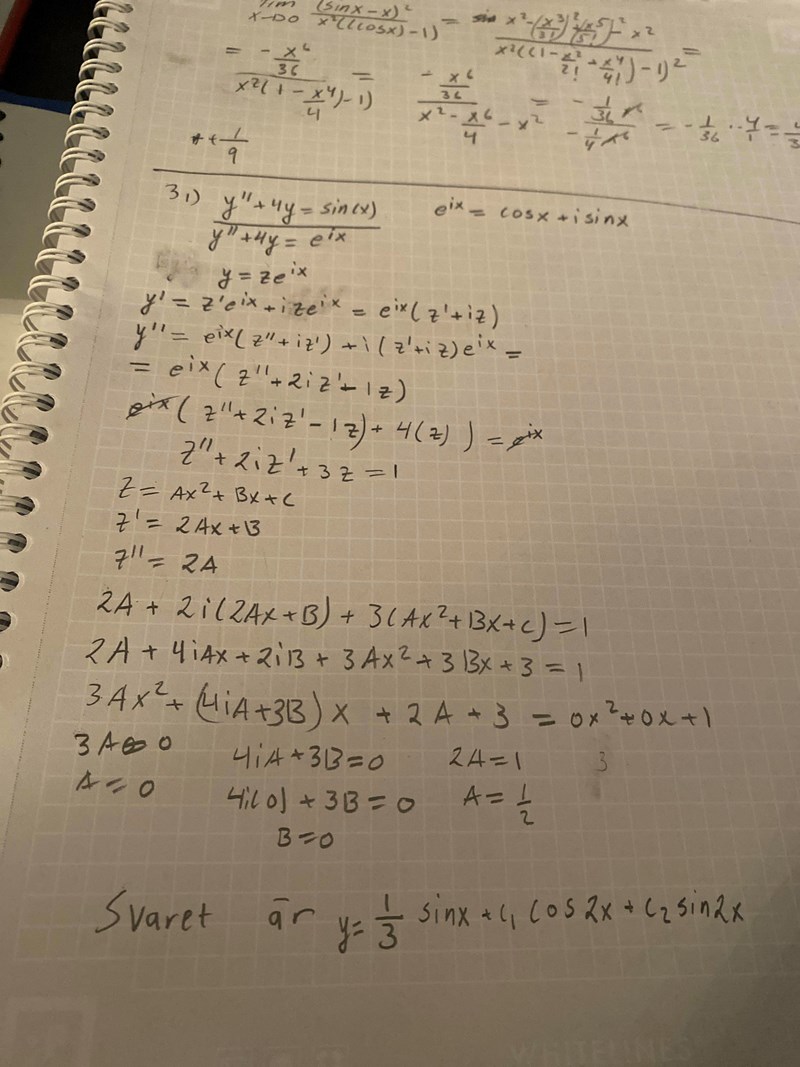 lim x→0 (sinx - x)² / x²((cosx) - 1) = x² - (x³/3!)² + (x⁵/5!)² - x² / x²((1 - x²/2! + x⁴/4!) - 1)² =
= - x⁶/36 / x²(1 - x⁴/4) - 1) = - x⁶/36 / x² - x⁶/4 - x² = - 1/36 x⁶ / - 1/4 x⁶ = - 1/36 · - 4/1 =
1/9
3.) y'' + 4y = sin(x) e^ix = cosx + i sinx
y'' + 4y = e^ix
y = ze^ix
y' = z'e^ix + ize^ix = e^ix(z' + iz)
y'' = e^ix(z'' + iz') + i(z' + iz)e^ix =
= e^ix(z'' + 2iz' - 1z)
e^ix(z'' + 2iz' - 1z) + 4(z)) = e^ix
z'' + 2iz' + 3z = 1
z = Ax² + Bx + C
z' = 2Ax + B
z'' = 2A
2A + 2i(2Ax + B) + 3(Ax² + Bx + C) = 1
2A + 4iAx + 2iB + 3Ax² + 3Bx + 3 = 1
3Ax² + (4iA + 3B)x + 2A + 3 = 0x² + 0x + 1
3A = 0 4iA + 3B = 0 2A = 1 3
A = 0 4i(0) + 3B = 0 A = 1/2
B = 0
Svaret är y = 1/3 sinx + C₁ cos2x + C₂ sin2x
WHITELINES